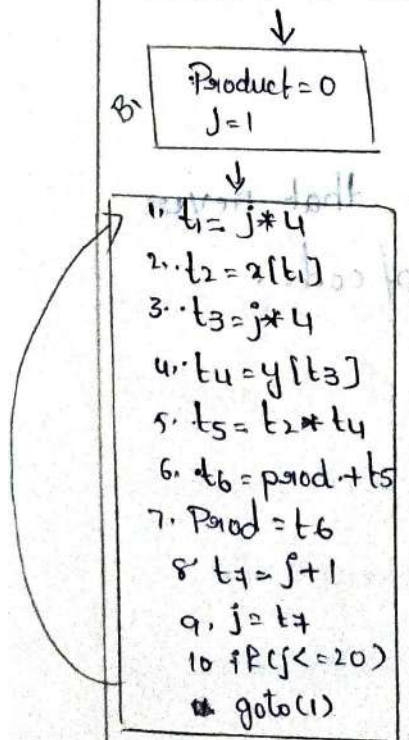 B1
Product = 0
J = 1
1. t1 = j * 4
2. t2 = x[t1]
3. t3 = j * 4
4. t4 = y[t3]
5. t5 = t2 * t4
6. t6 = prod + t5
7. Prod = t6
8 t7 = j + 1
9. j = t7
10 if (j <= 20)
goto (1)